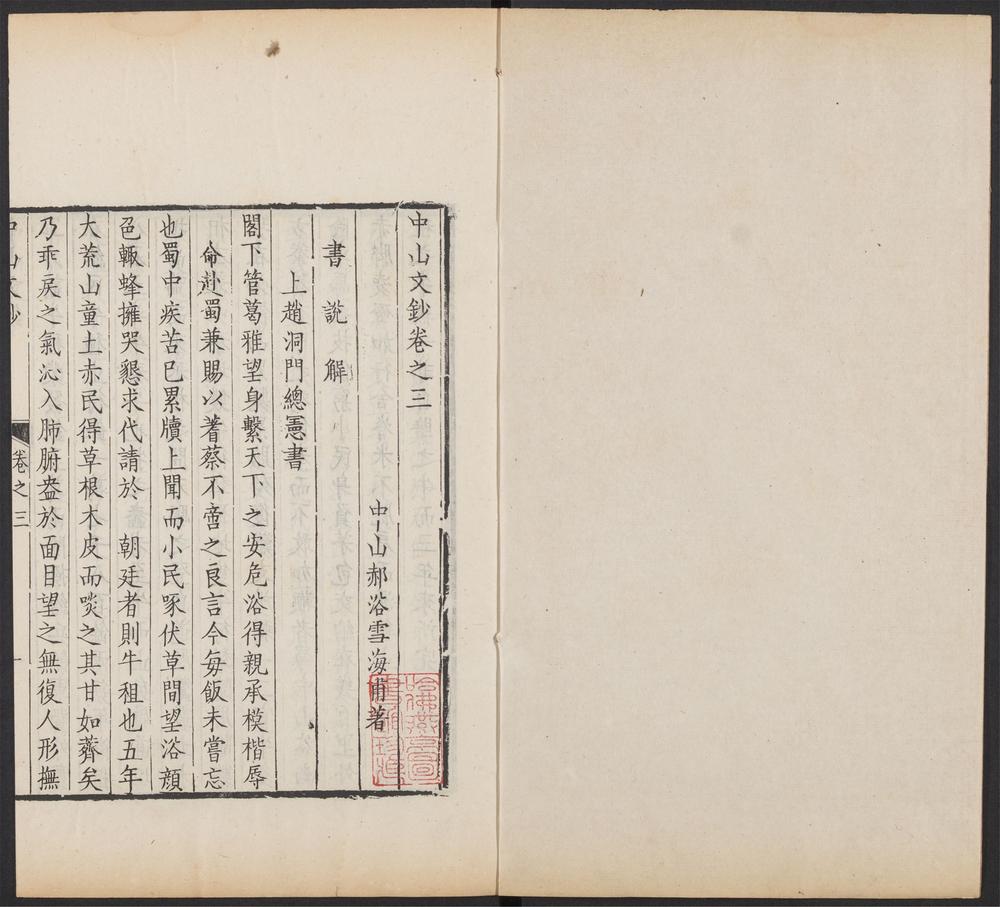 中山文鈔卷之三
中山郝浴雪海甫著
書說解
上趙洞門總憲書
閣下管葛雅望身繫天下之安危浴得親承模楷辱
命赴蜀兼賜以蓍蔡不啻之良言今每飯未嘗忘
也蜀中疾苦已累牘上聞而小民啄伏草間望浴顏
色輙蜂擁哭懇求代請於 朝廷者則牛租也五年
大荒山童土赤民得草根木皮而啖之其甘如薺矣
乃乖戾之氣沁入肺腑盎於面目望之無復人形撫
中山文鈔
卷之三
一
哈佛燕京圖
書館珍藏